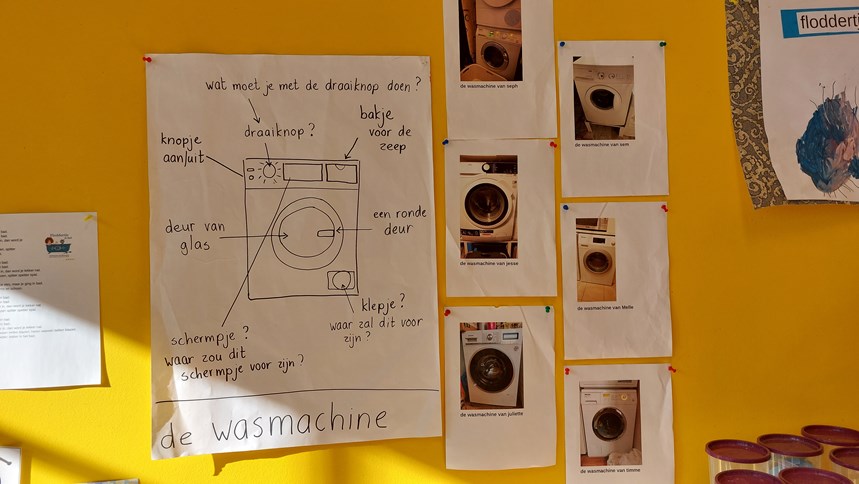 wat moet je met de draaiknop doen?
draaiknop?
bakje
voor de
zeep
knopje
aan/uit
deur van
glas
een ronde
deur
klepje?
waar zal dit voor
zijn?
schermpje?
waar zou dit
schermpje voor zijn?
de wasmachine
de wasmachine van seph
de wasmachine van sem
de wasmachine van jesse
de wasmachine van Melle
de wasmachine van juliette
de wasmachine van timme